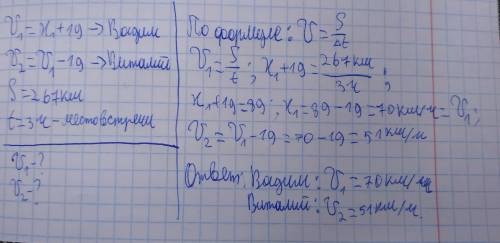 V₁=x₁+19 → Вадим
V₂=V₁-19 → Виталий
S=267км
t=3ч - место встречи
V₁-?
V₂-?
По формуле: V=S/Δt
V₁=S/t; x₁+19=267км/3ч;
x₁+19=89; x₁=89-19=70км/ч=V₁;
V₂=V₁-19=70-19=51км/ч
Ответ: Вадим: V₁=70км/ч
Виталий: V₂=51км/ч.